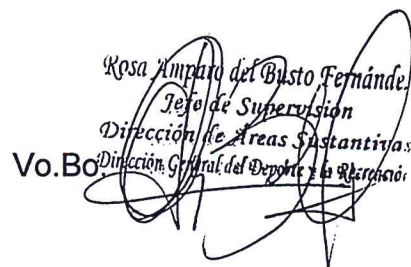 Rosa Amparo del Busto Fernánde
Jefe de Supervisión
Dirección de Áreas Sustantivas
Vo.Bo. Dirección General del Deporte y la Recreación